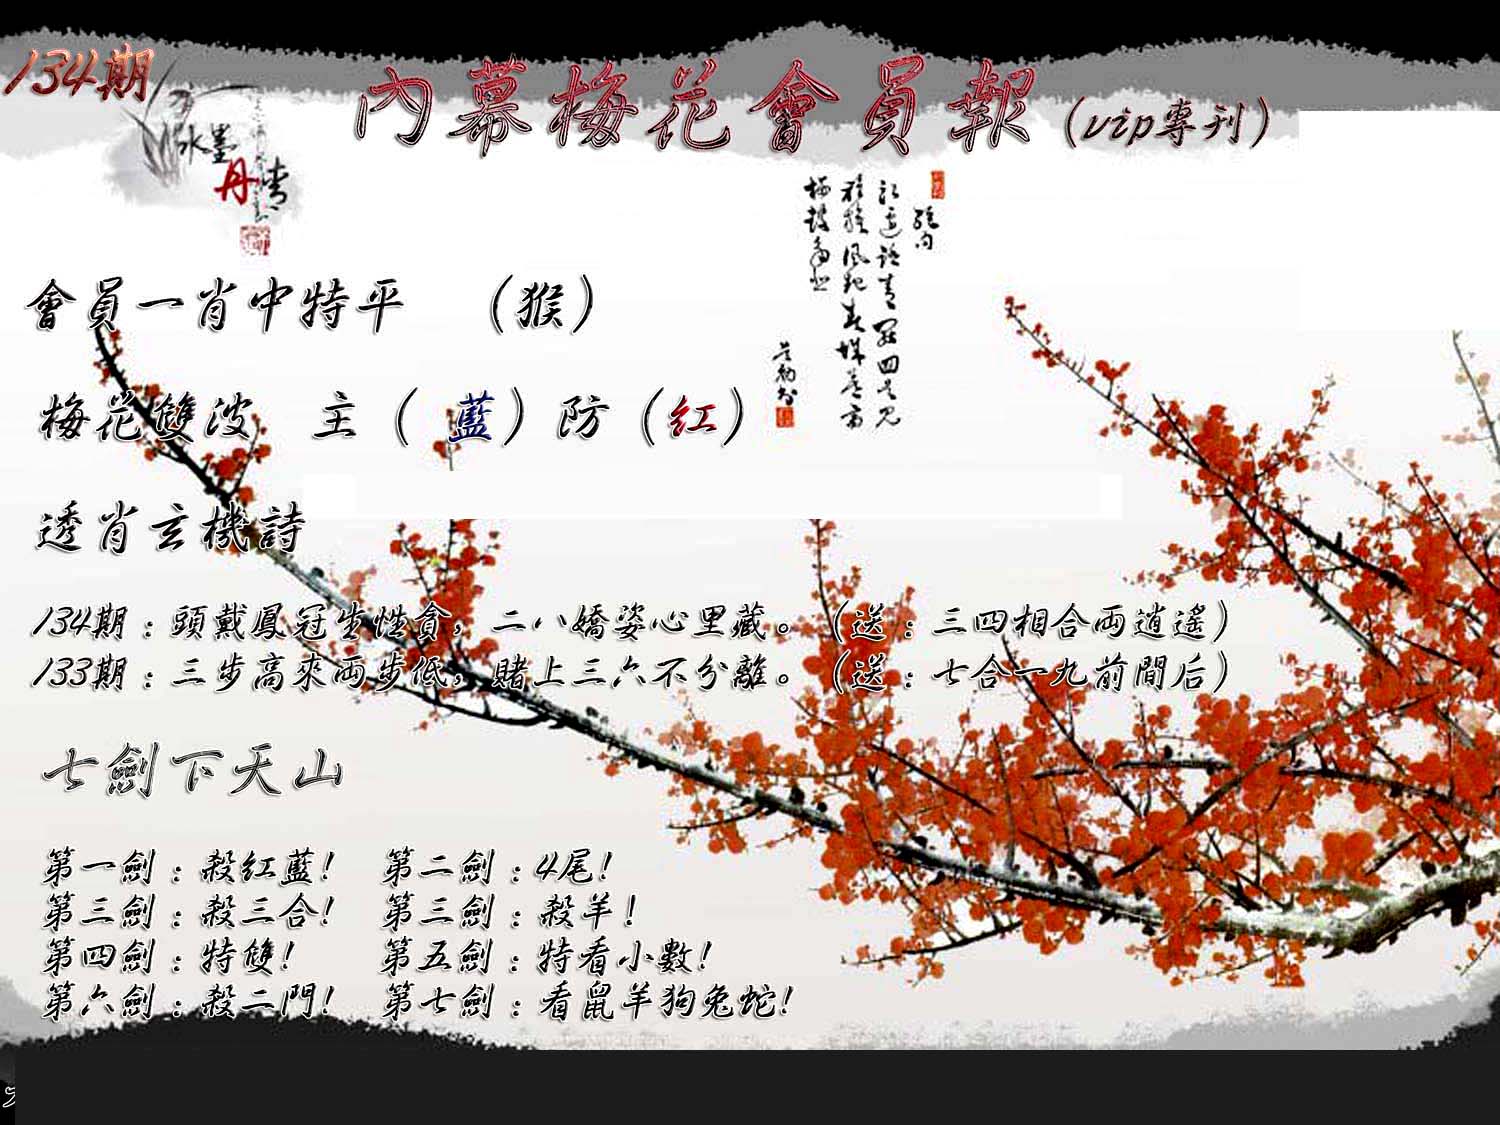 134期
內幕梅花會員報(vip專刊)
水墨
丹青
會員一肖中特平 (猴)
梅花雙波 主(藍)防(紅)
透肖玄機詩
134期:頭戴鳳冠生性貪,二八嬌姿心里藏。(送:三四相合兩逍遙)
133期:三步高來兩步低,賭上三六不分離。(送:七合一九前間后)
七劍下天山
第一劍:殺紅藍! 第二劍:4尾!
第三劍:殺三合! 第三劍:殺羊!
第四劍:特雙! 第五劍:特看小數!
第六劍:殺二門! 第七劍:看鼠羊狗兔蛇!